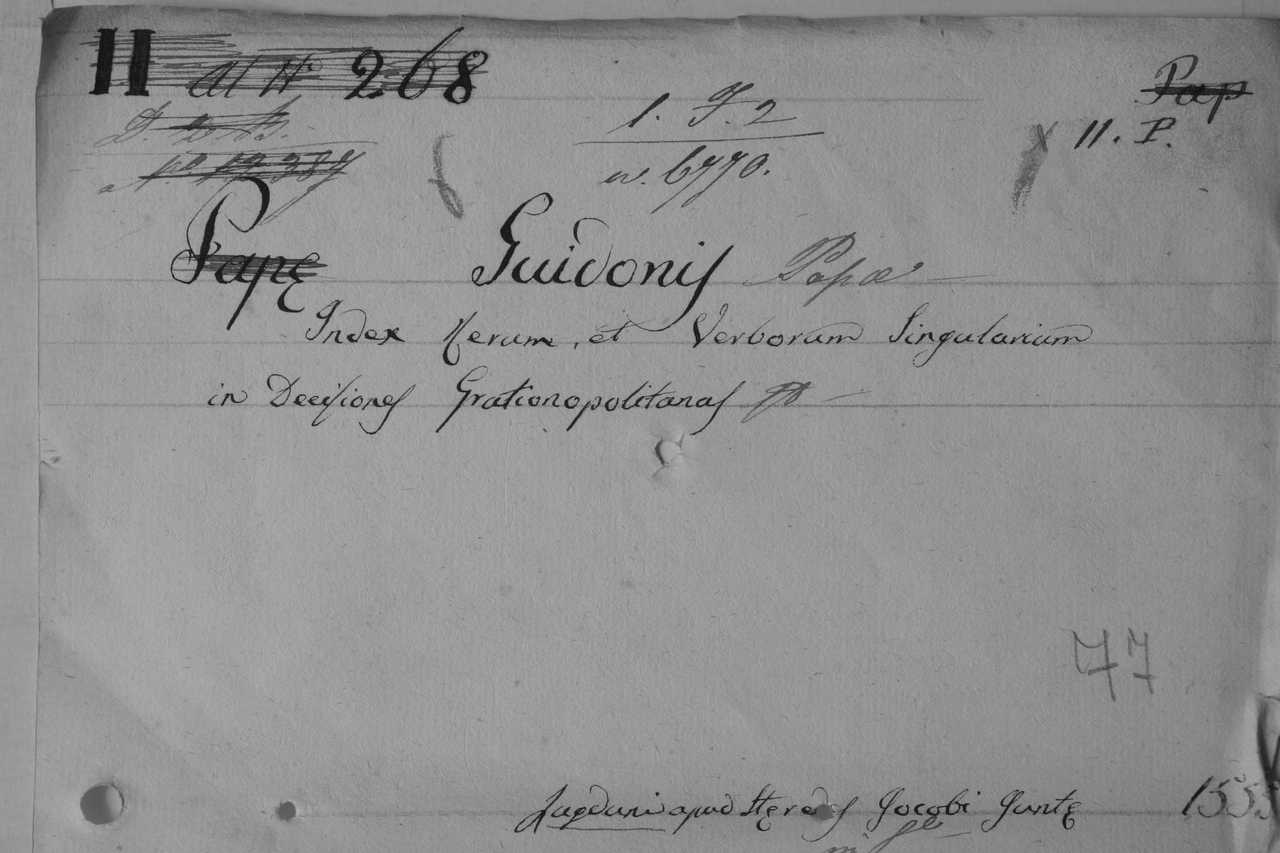 II al N 268
Pap
1. F. 2
x II. P.
n. 6770.
Papę Guidonis Papae
Index Rerum, et Verborum Singularium
in Decisiones Grationopolitanas
77
Lugduni apud Hęredes Jacobi Juntę 1555